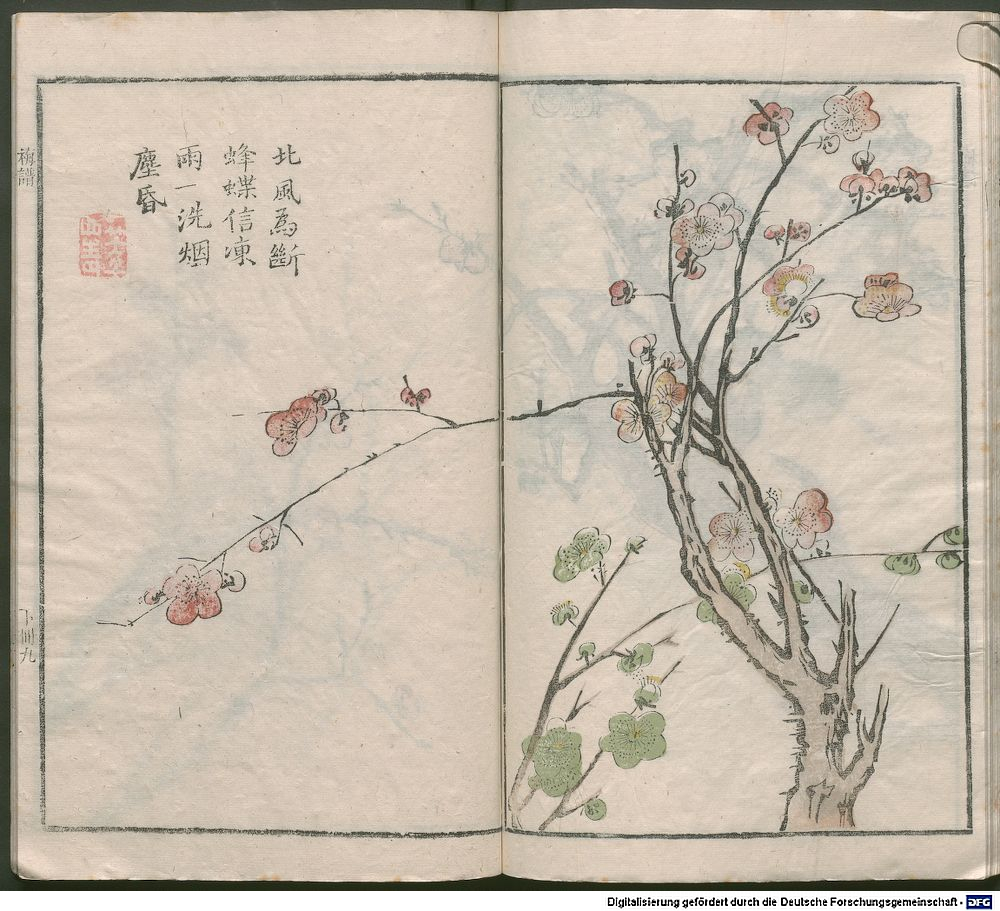 北風爲斷
蜂蝶信凍
雨一洗烟
塵昏
梅譜
下冊九
Digitalisierung gefördert durch die Deutsche Forschungsgemeinschaft - DFG